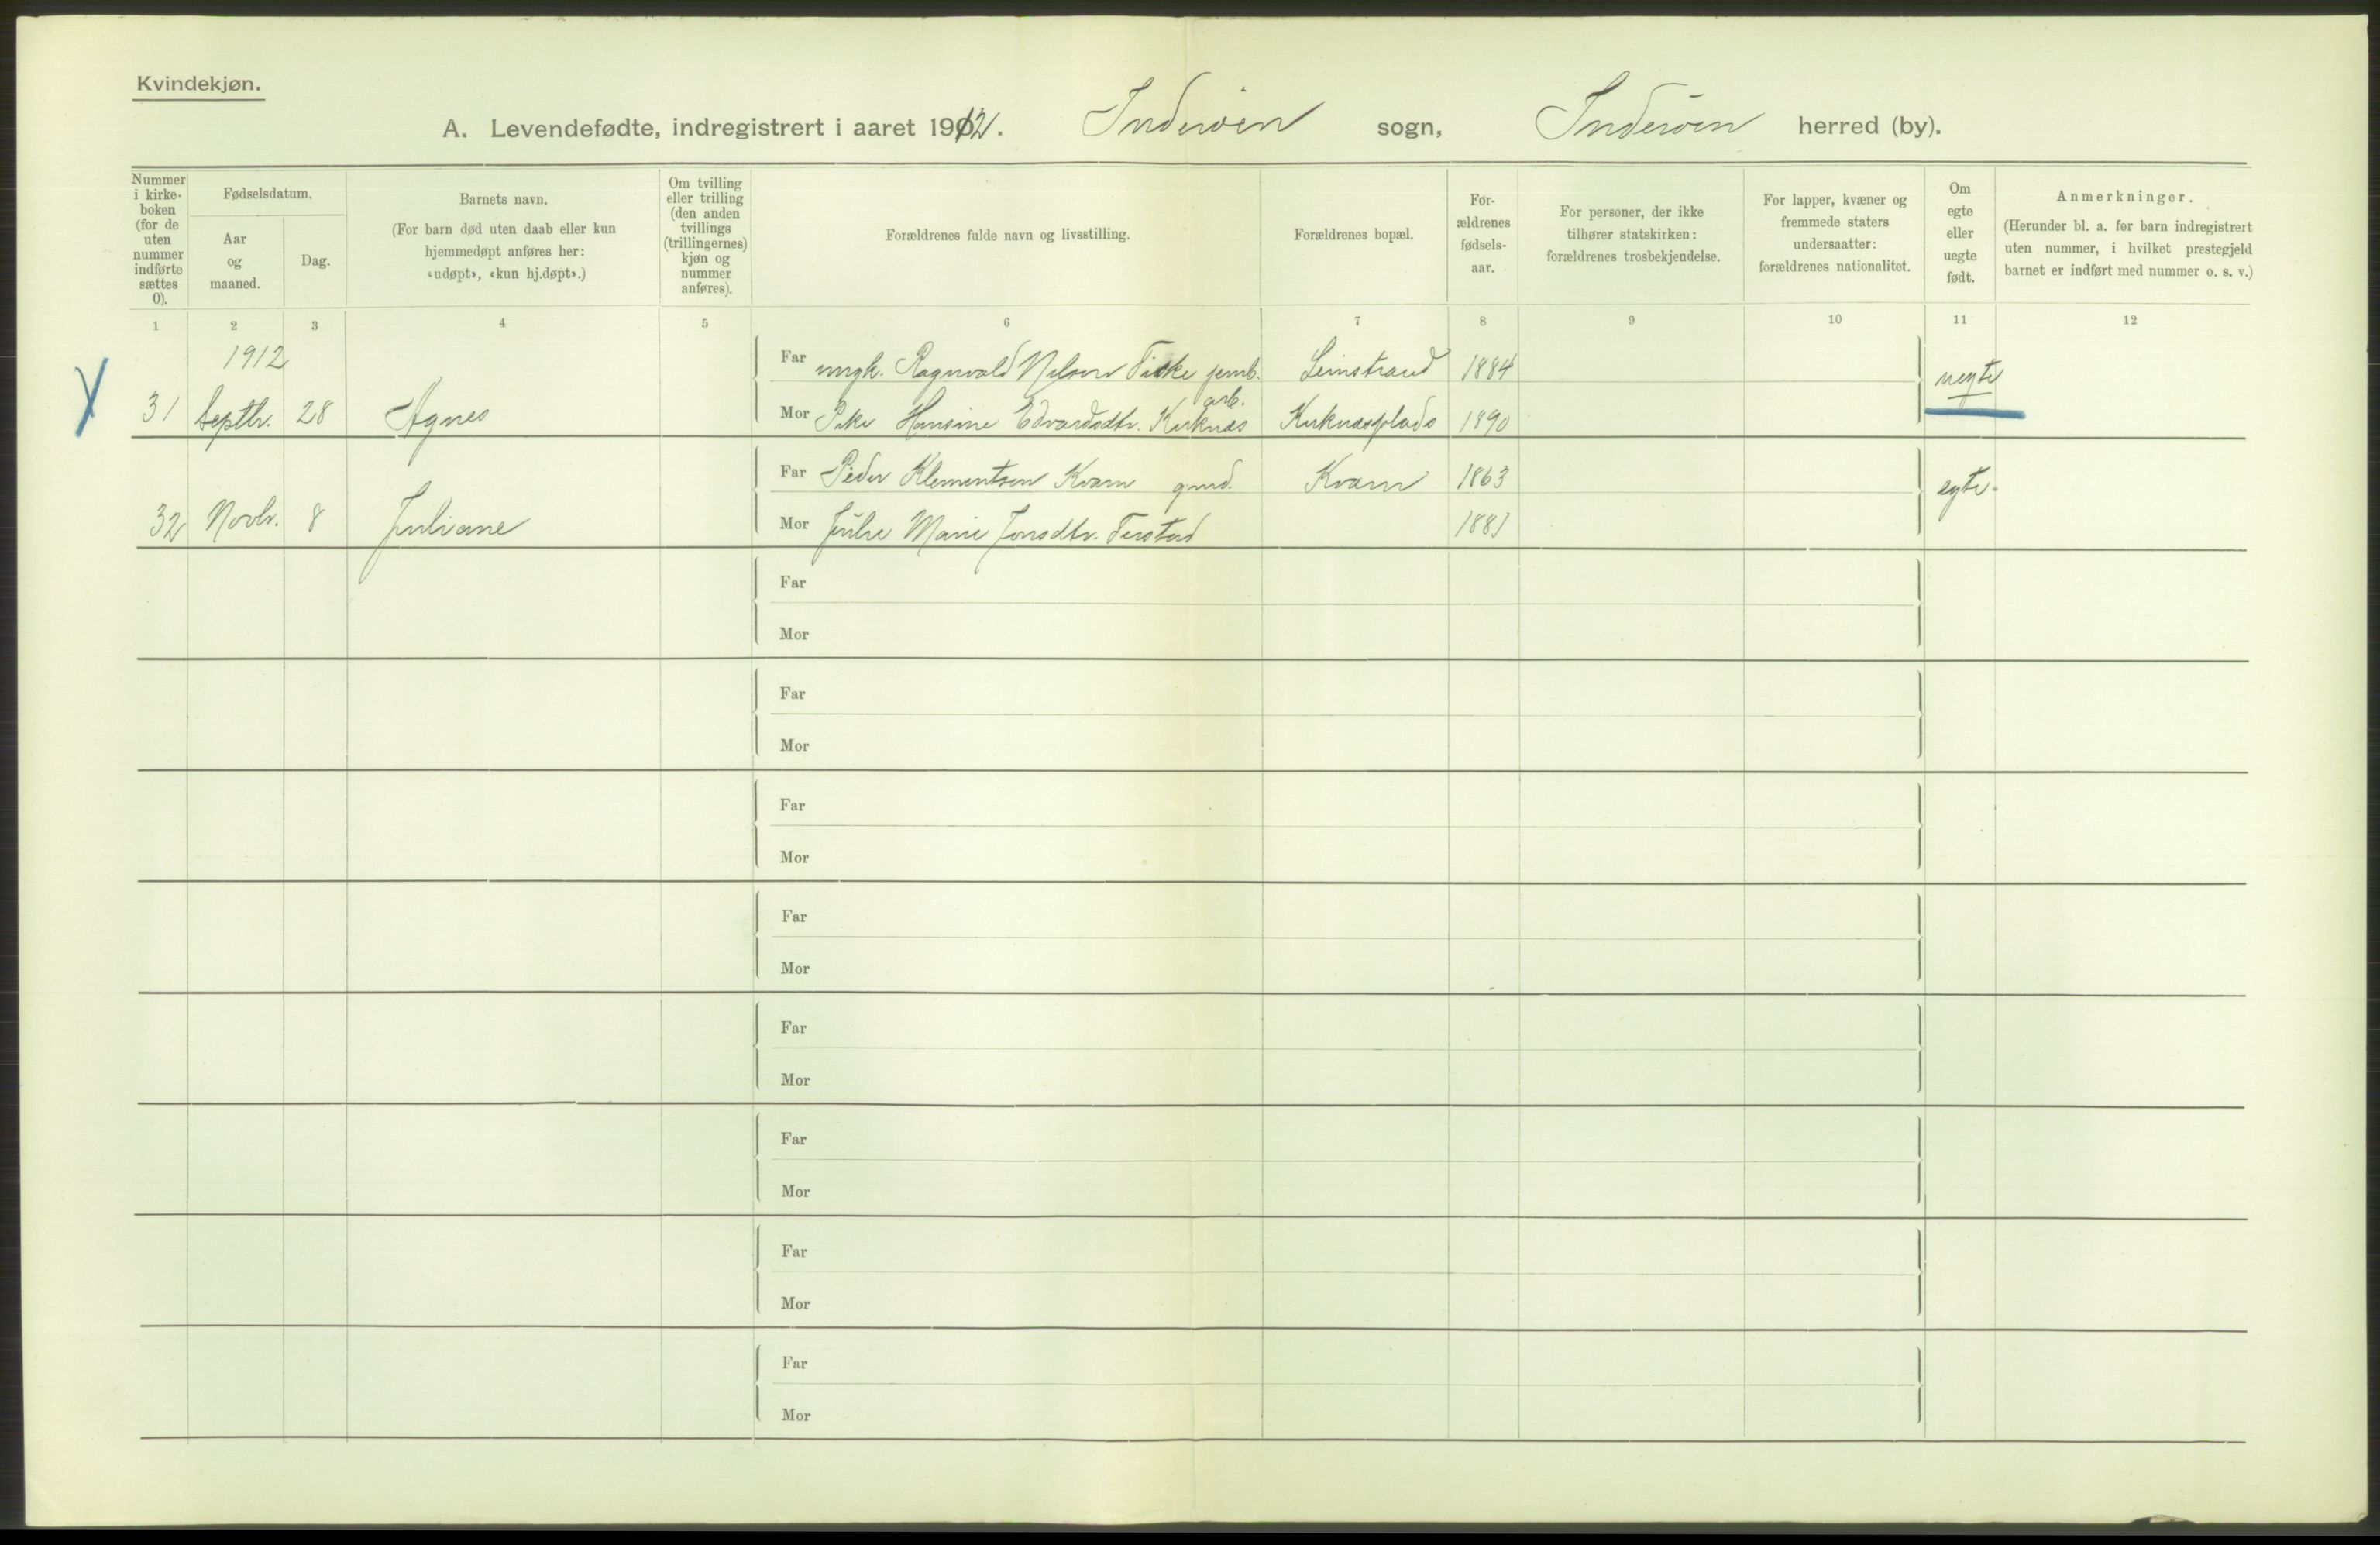 Kvindekjøn.
A. Levendefødte, indregistrert i aaret 1912. Inderøen sogn, Inderøen herred (by).
Nummer i kirke-
boken
(for de
uten
nummer
indførte
sættes
0).
Fødselsdatum.
Aar
og
maaned.
Dag.
Barnets navn.
(For barn død uten daab eller kun
hjemmedøpt anføres her:
«udøpt», «kun hj.døpt».)
Om tvilling
eller trilling
(den anden
tvillings
(trillingernes)
kjøn og
nummer
anføres).
Forældrenes fulde navn og livsstilling.
Forældrenes bopæl.
For-
ældrenes
fødsels-
aar.
For personer, der ikke
tilhører statskirken:
forældrenes trosbekjendelse.
For lapper, kvæner og
fremmede staters
undersaatter:
forældrenes nationalitet.
Om
egte
eller
uegte
født.
Anmerkninger.
(Herunder bl. a. for barn indregistrert
uten nummer, i hvilket prestegjeld
barnet er indført med nummer o. s. v.)
1 2 3 4 5 6 7 8 9 10 11 12
1912
Far ungk. Ragnvald Nilsen jernb. arb. Leinstrand 1884 uegte
31 Septbr. 28 Agnes Mor Pike Hansine Edvardsdtr. Kirknæs Kirknæsplads 1890
Far Peder Klementsen Kvam gmd. Kvam 1863 egte.
32 Novbr. 8 Juliane Mor Julie Marie Jonsdtr. 1881
Far
Mor
Far
Mor
Far
Mor
Far
Mor
Far
Mor
Far
Mor
Far
Mor
Far
Mor